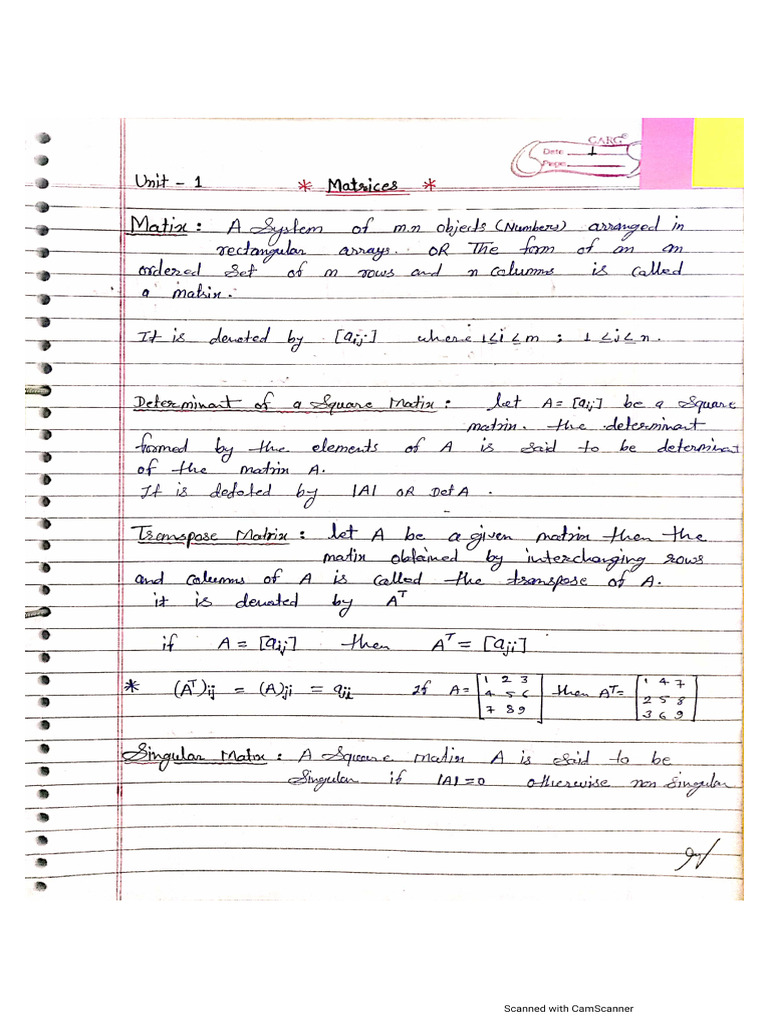 GARG
Date 1
Page
Unit - 1 * Matrices *
Matix : A System of m.n objects (Numbers) arranged in
rectangular arrays. OR The form of an an
ordered set of m rows and n columns is called
a matrix.
It is denoted by [aij] where 1≤i≤m ; 1≤j≤n.
Determinant of a Square Matix : let A = [aij] be a square
matrix. the determinant
formed by the elements of A is said to be determinat
of the matrix A.
It is defoted by |A| OR Det A .
Transpose Matrix : let A be a given matrix then the
matix obtained by interchanging rows
and columns of A is called the transpose of A.
it is denoted by Aᵀ
if A = [aij] then Aᵀ = [aji]
* (Aᵀ)ij = (A)ji = aji If A = [1 2 3 4 5 6 7 8 9] then Aᵀ = [1 4 7 2 5 8 3 6 9]
Singular Matix : A Square matix A is said to be
Singular if |A| = 0 otherwise non singular
Scanned with CamScanner